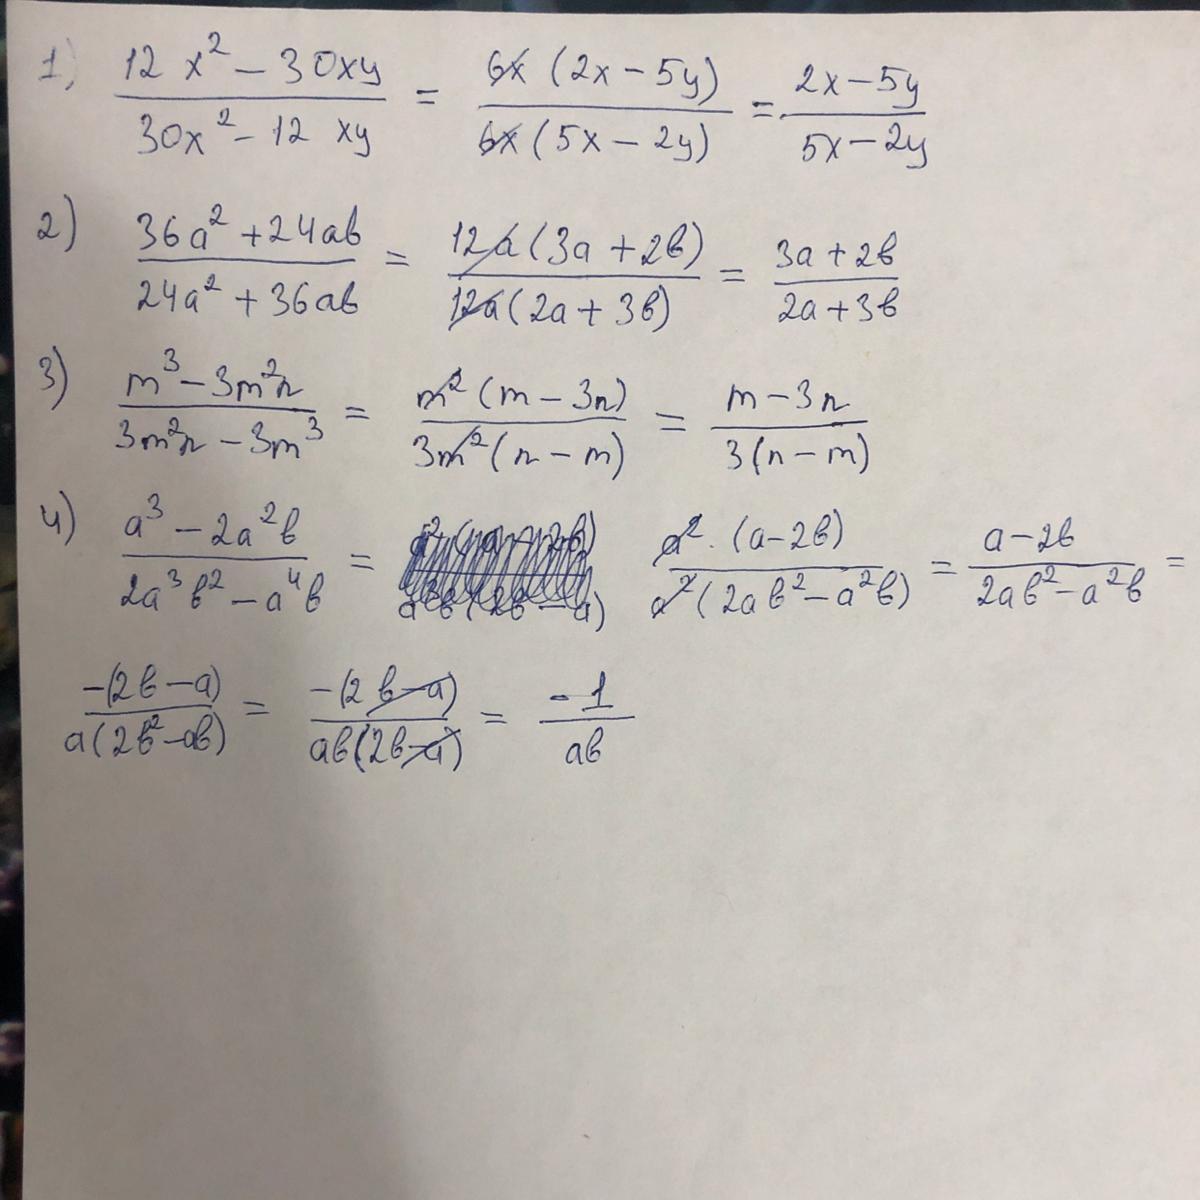 1) (12x² - 30xy)/(30x² - 12xy) = (6x(2x - 5y))/(6x(5x - 2y)) = (2x - 5y)/(5x - 2y)
2) (36a² + 24ab)/(24a² + 36ab) = (12a(3a + 2b))/(12a(2a + 3b)) = (3a + 2b)/(2a + 3b)
3) (m³ - 3m²n)/(3m²n - 3m³) = (m²(m - 3n))/(3m²(n - m)) = (m - 3n)/(3(n - m))
4) (a³ - 2a²b)/(2a³b² - a⁴b) = (a² · (a - 2b))/(a²(2ab² - a²b)) = (a - 2b)/(2ab² - a²b) =
(-(2b - a))/(a(2b² - ab)) = (-(2b - a))/(ab(2b - a)) = (-1)/(ab)